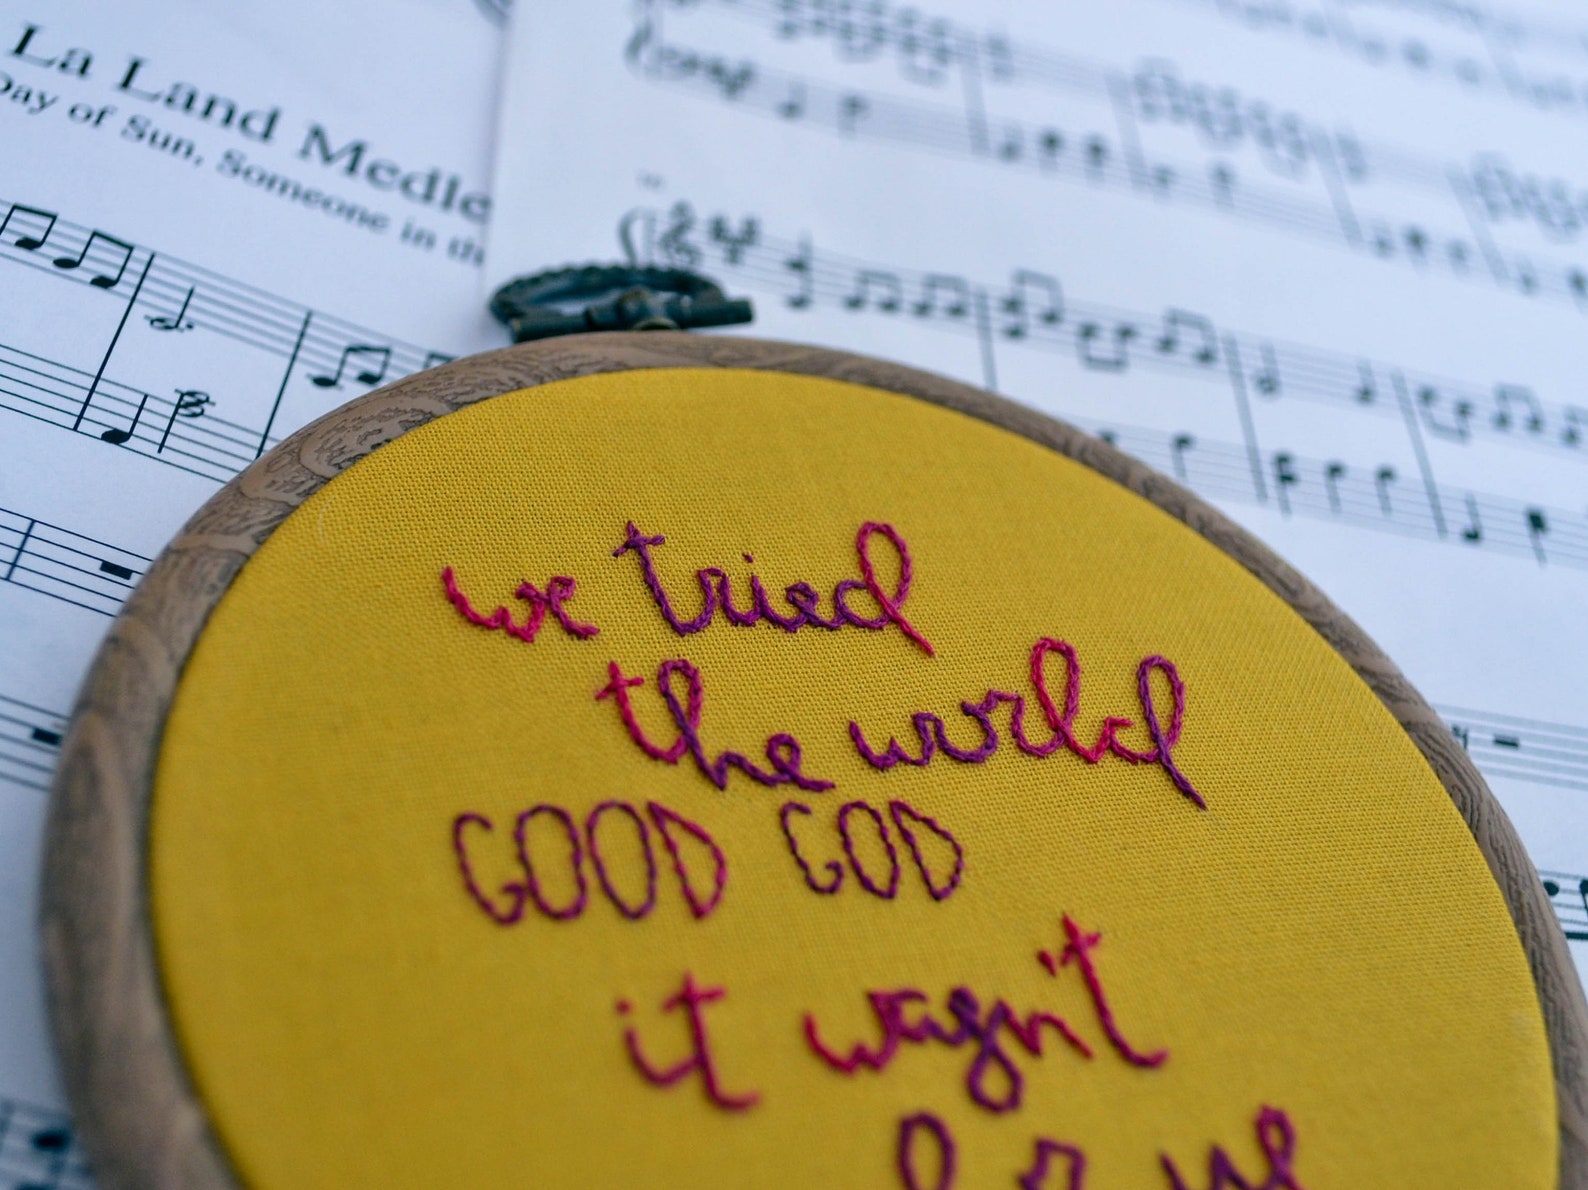 La Land Medle
Day of Sun, Someone in th
we tried
the world
GOOD GOD
it wasn't
for us